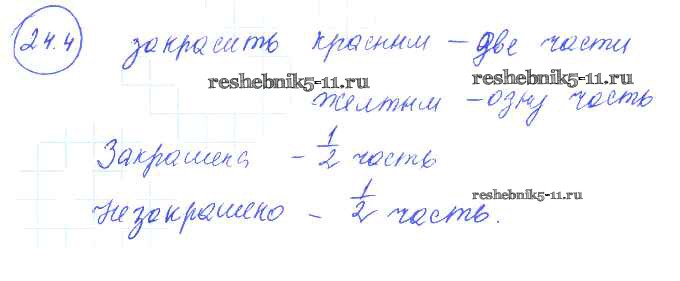 24.4 закрасить красным – две части
reshebnik5-11.ru reshebnik5-11.ru
желтым – одну часть
Закрашена – 1/2 часть
reshebnik5-11.ru
Незакрашено – 1/2 часть.